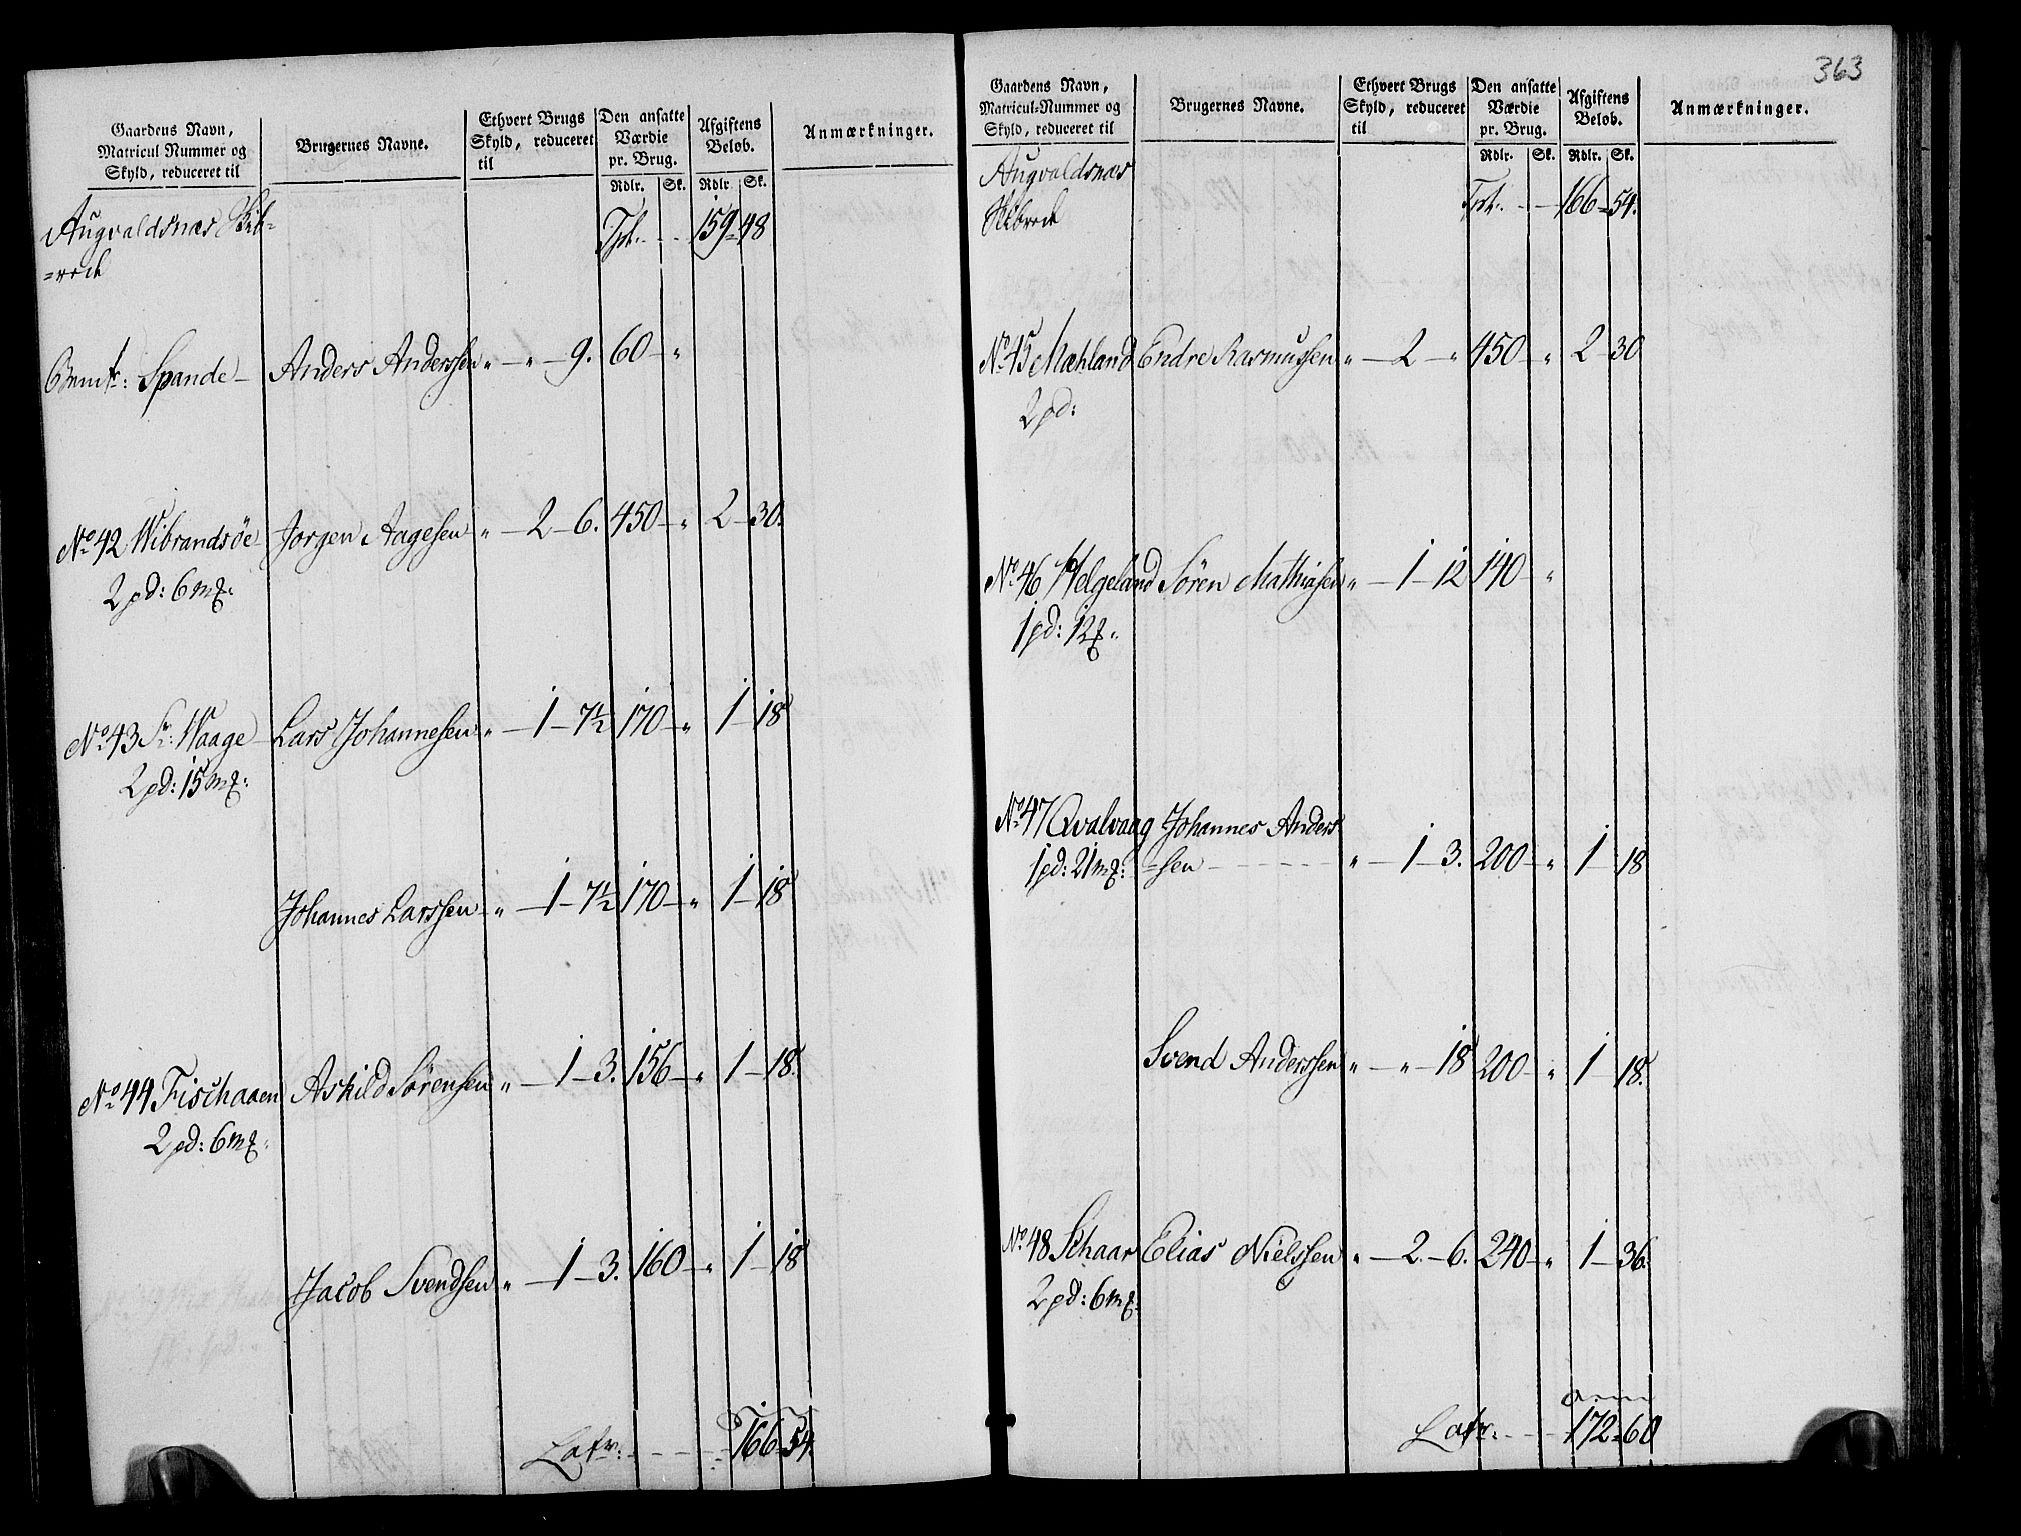 Gaardens Navn,
Matricul Nummer og
Skyld, reduceret til
Brugernes Navne.
Ethvert Brugs
Skyld, reduceret
til
Den ansatte
Værdie
pr. Brug.
Rdlr. Sk.
Afgiftens
Beløb.
Rdlr. Sk.
Anmærkninger.
Augvaldsnæs Skib-
=rede Tpt: - - 159-48
Spande - Anders Anderssen " - " - 9. 60 - "
No 42 Wibrandsöe Jorgen Aagesen " - 2 - 6. 450 - " 2 - 30.
2 pd: 6 mȝ.
No 43 Sr: Waage - Lars Johannesen " - 1 - 7½ 170 - " 1 - 18
2 pd: 15 mȝ.
Johannes Larssen " - 1 - 7½ 170 - " 1 - 18
No 44 Fischaaen Askild Sörensen " - 1 - 3. 156 - " 1 - 18.
2 pd: 6 mȝ.
Jacob Svendsen " - 1 - 3. 160 - " 1 - 18
Latr: - - - - 166-54.
363
Gaardens Navn,
Matricul-Nummer og
Skyld, reduceret til
Brugernes Navne.
Ethvert Brugs
Skyld, reduceret
til
Den ansatte
Værdie
pr. Brug.
Rdlr. Sk.
Afgiftens
Beløb.
Rdlr. Sk.
Anmærkninger.
Augvaldsnæs
Skibrede Tpt: - - 166-54.
No 45 Mæhland Endre Rasmussen " - 2 - " 450 - " 2 - 30
2 pd:
No 46 Helgeland Sören Mathiasen " - 1 - 12 140 - "
1 pd: 12 ȝ.
No 47 Qvalvaag Johannes Anders
1 pd: 21 mȝ. =sen - - - - " - 1 - 3. 200 - " 1 - 18
Svend Anderssen " - " - 18 200 - " 1 - 18.
No 48 Schaar Elias Nielssen " - 2 - 6. 240 - " 1 - 36.
2 pd: 6 mȝ.
Latr: - - - 172-60